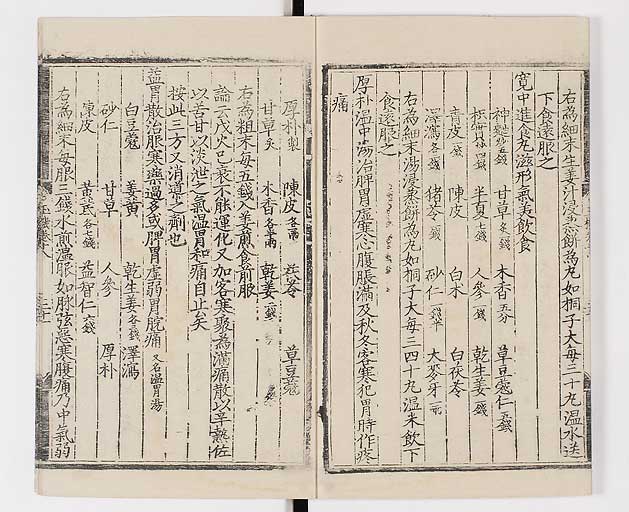 右為細末生姜汁浸蒸餅為丸如桐子大每三十丸温水送
下食遠服之
寛中進食丸滋形氣美飲食
神麹 甘草 木香五分 草豆蔲仁
枳實 半夏七錢 人參 乾生姜一錢
青皮一錢 陳皮 白朮 白茯苓
澤瀉各錢 猪苓 砂仁 大麥牙
右為細末湯浸蒸餅為丸如桐子大每三四十丸温米飲下
食遠服之
厚朴温中湯治脾胃虛寒心腹脹滿及秋冬客寒犯胃時作疼
痛
厚朴製 陳皮 茯苓 草豆蔲
甘草炙 木香各半兩 乾姜
右為粗末每五錢入姜煎食前服
論云戊火已衰不能運化又加客寒聚為滿痛散以辛熱佐
以苦甘以淡泄之氣温胃和痛自止矣
按此三方又消道之劑也
益胃散治服寒藥過多或脾胃虛弱胃脘痛又名温胃湯
白豆蔲 姜黃 乾生姜各錢 澤瀉
砂仁 甘草 人參 厚朴
陳皮 黃芪各七錢 益智仁六錢
右為細末每服三錢水煎温服如脉弦惡寒腹痛乃中氣弱